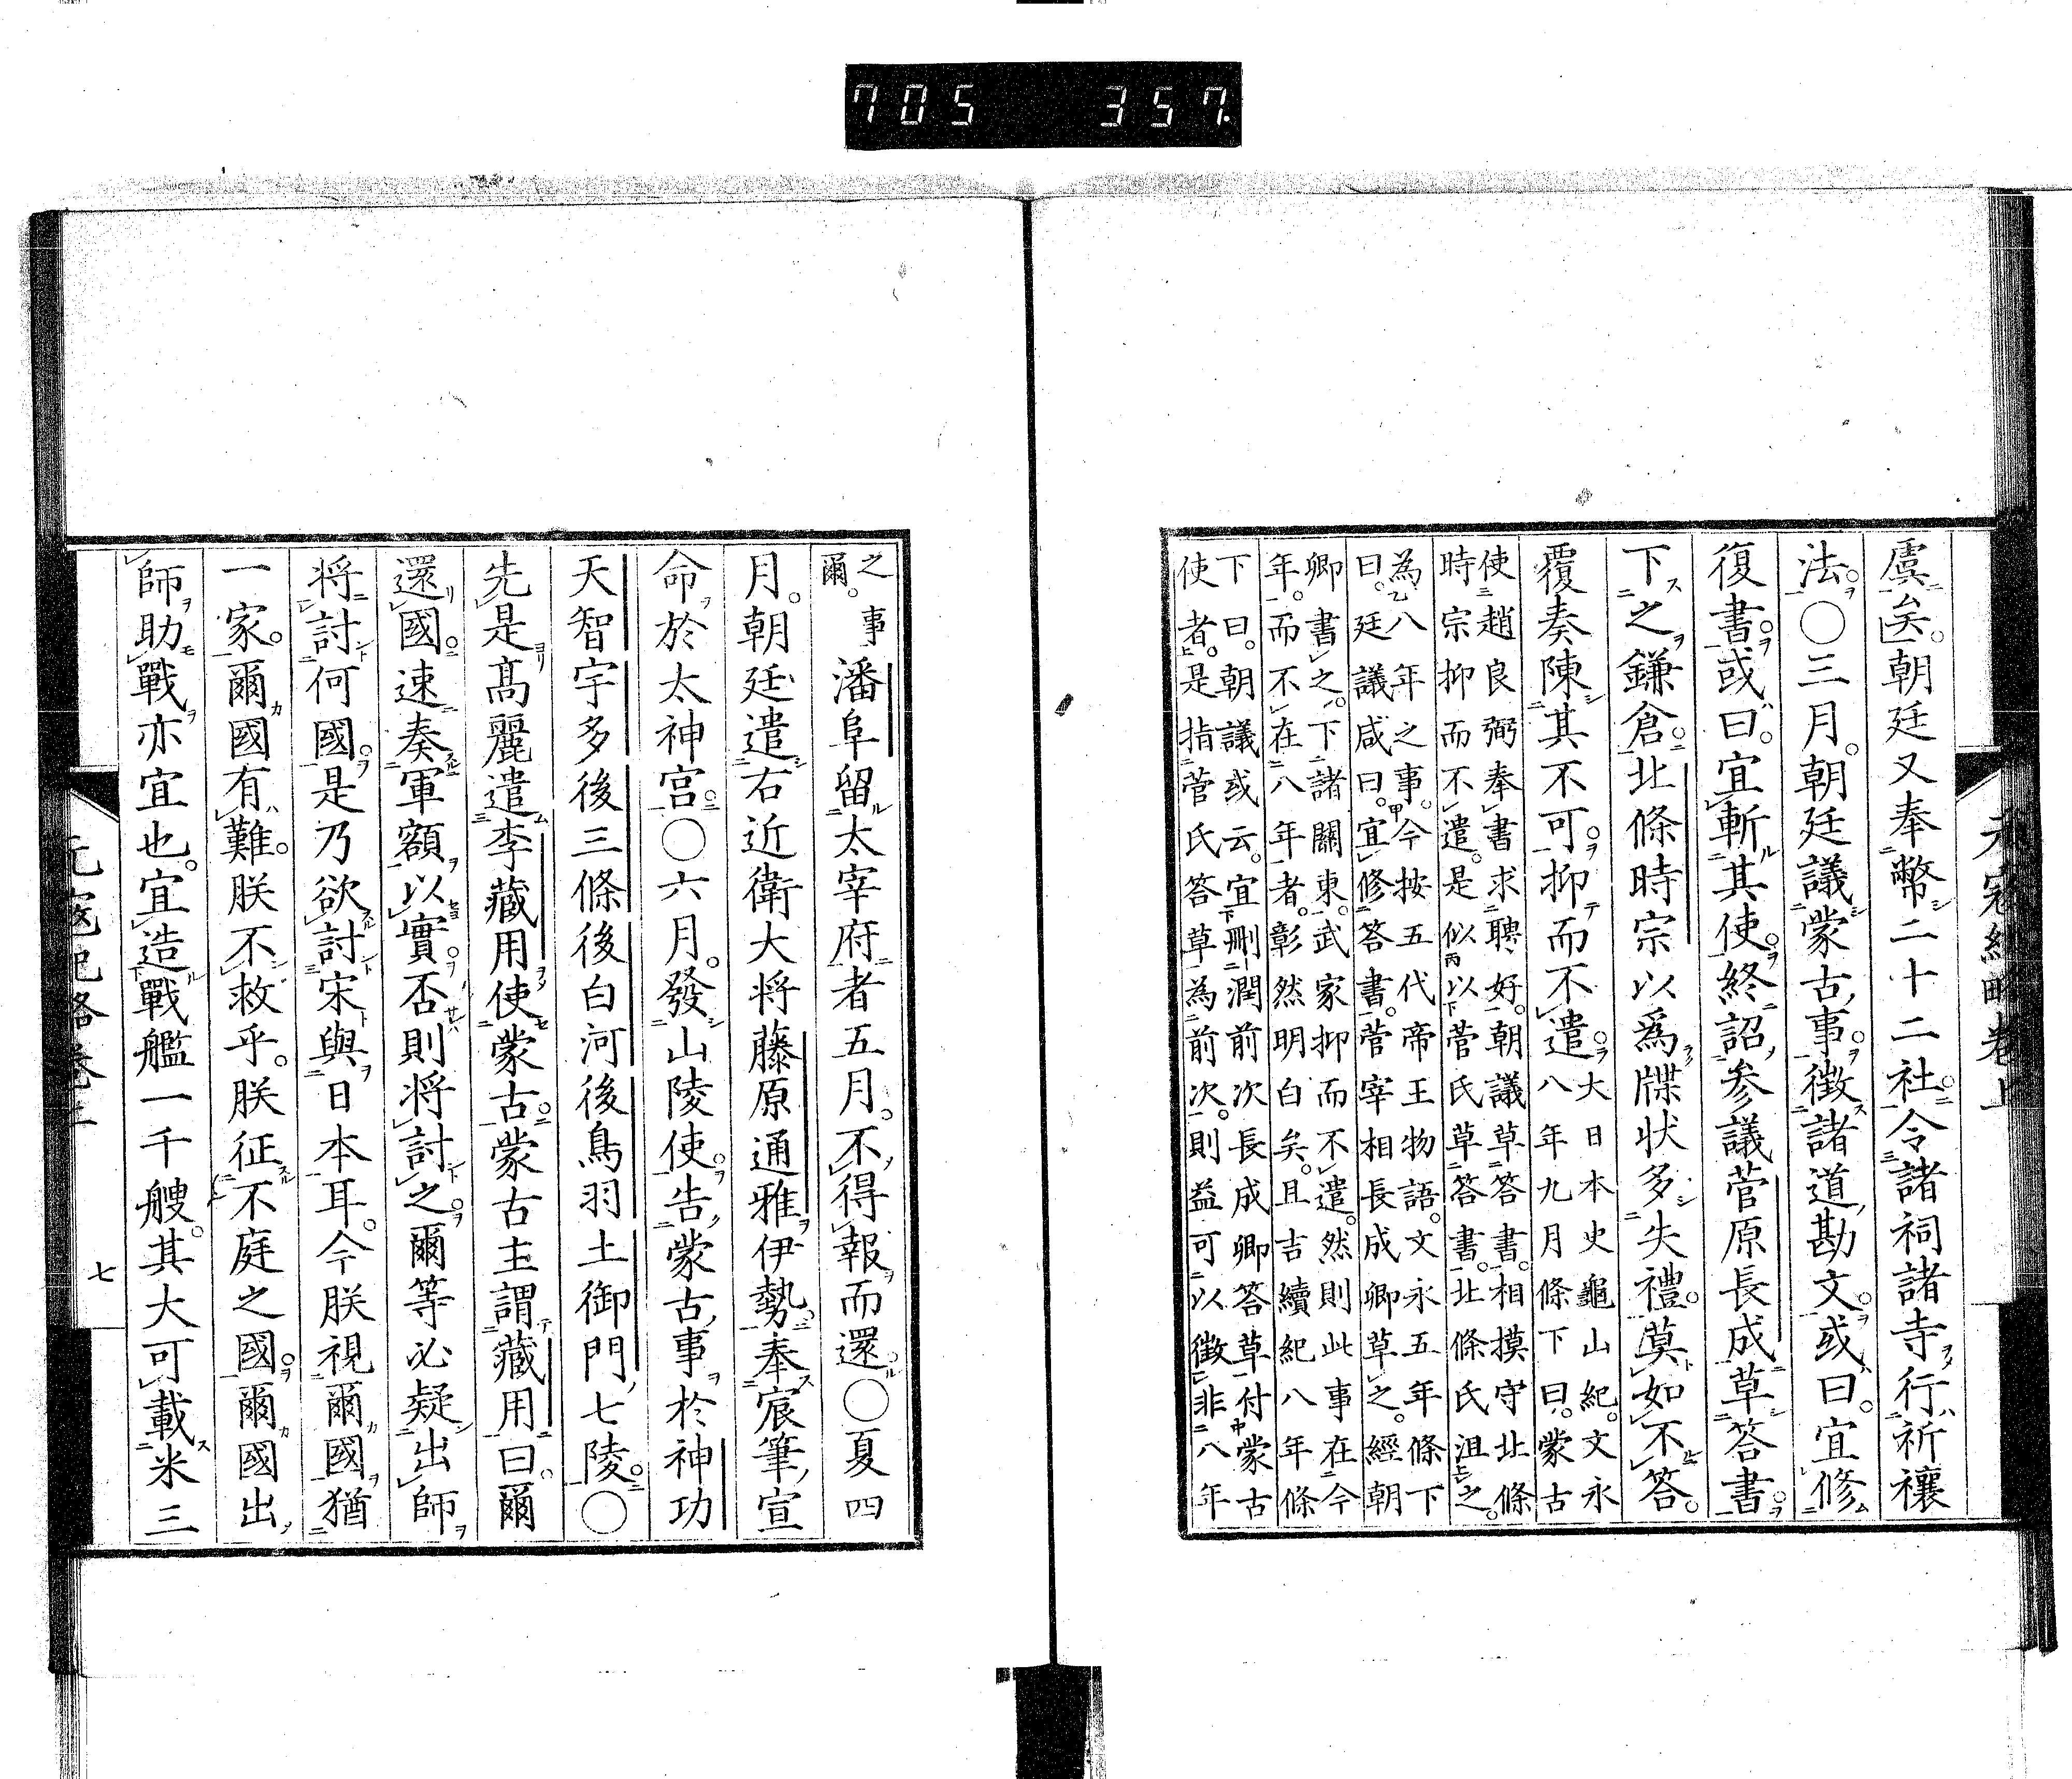 705 357
虞矣。朝廷又奉幣二十二社。令諸祠諸寺行祈禳
法。○三月。朝廷議蒙古事。徵諸道勘文。或曰。宜修
復書。或曰。宜斬其使。終詔參議菅原長成草答書。
下之鎌倉。北條時宗以爲牒状多失禮。莫如不答。
覆奏陳其不可。抑而不遣。
大日本史龜山紀。文永
八年九月條下曰。蒙古
使趙良弼奉書求聘好。朝議草答書。相摸守北條
時宗抑而不遣。是似以菅氏草答書。北條氏沮之。
為八年之事。今按五代帝王物語。文永五年條下
曰。廷議咸曰。宜修答書。菅宰相長成卿草之。經朝
卿書之。下諸關東。武家抑而不遣。然則此事在今
年。而不在八年者。彰然明白矣。且吉續紀八年條
下曰。朝議或云。宜刪潤前次長成卿答草付蒙古
使者。是指菅氏答草為前次。則益可以徵非八年
之事
爾。
潘阜留太宰府者五月。不得報而還。○夏四
月。朝廷遣右近衛大将藤原通雅伊勢。奉宸筆宣
命於太神宮。○六月。發山陵使。告蒙古事於神功
天智宇多後三條後白河後鳥羽土御門七陵。○
先是高麗遣李藏用使蒙古。蒙古主謂藏用曰。爾
還國。速奏軍額。以實。否則将討之。爾等必疑出師
将討何國。是乃欲討宋與日本耳。今朕視爾國猶
一家。爾國有難。朕不救乎。朕征不庭之國。爾國出
師助戰亦宜也。宜造戰艦一千艘。其大可載米三
元寇紀略卷上
七